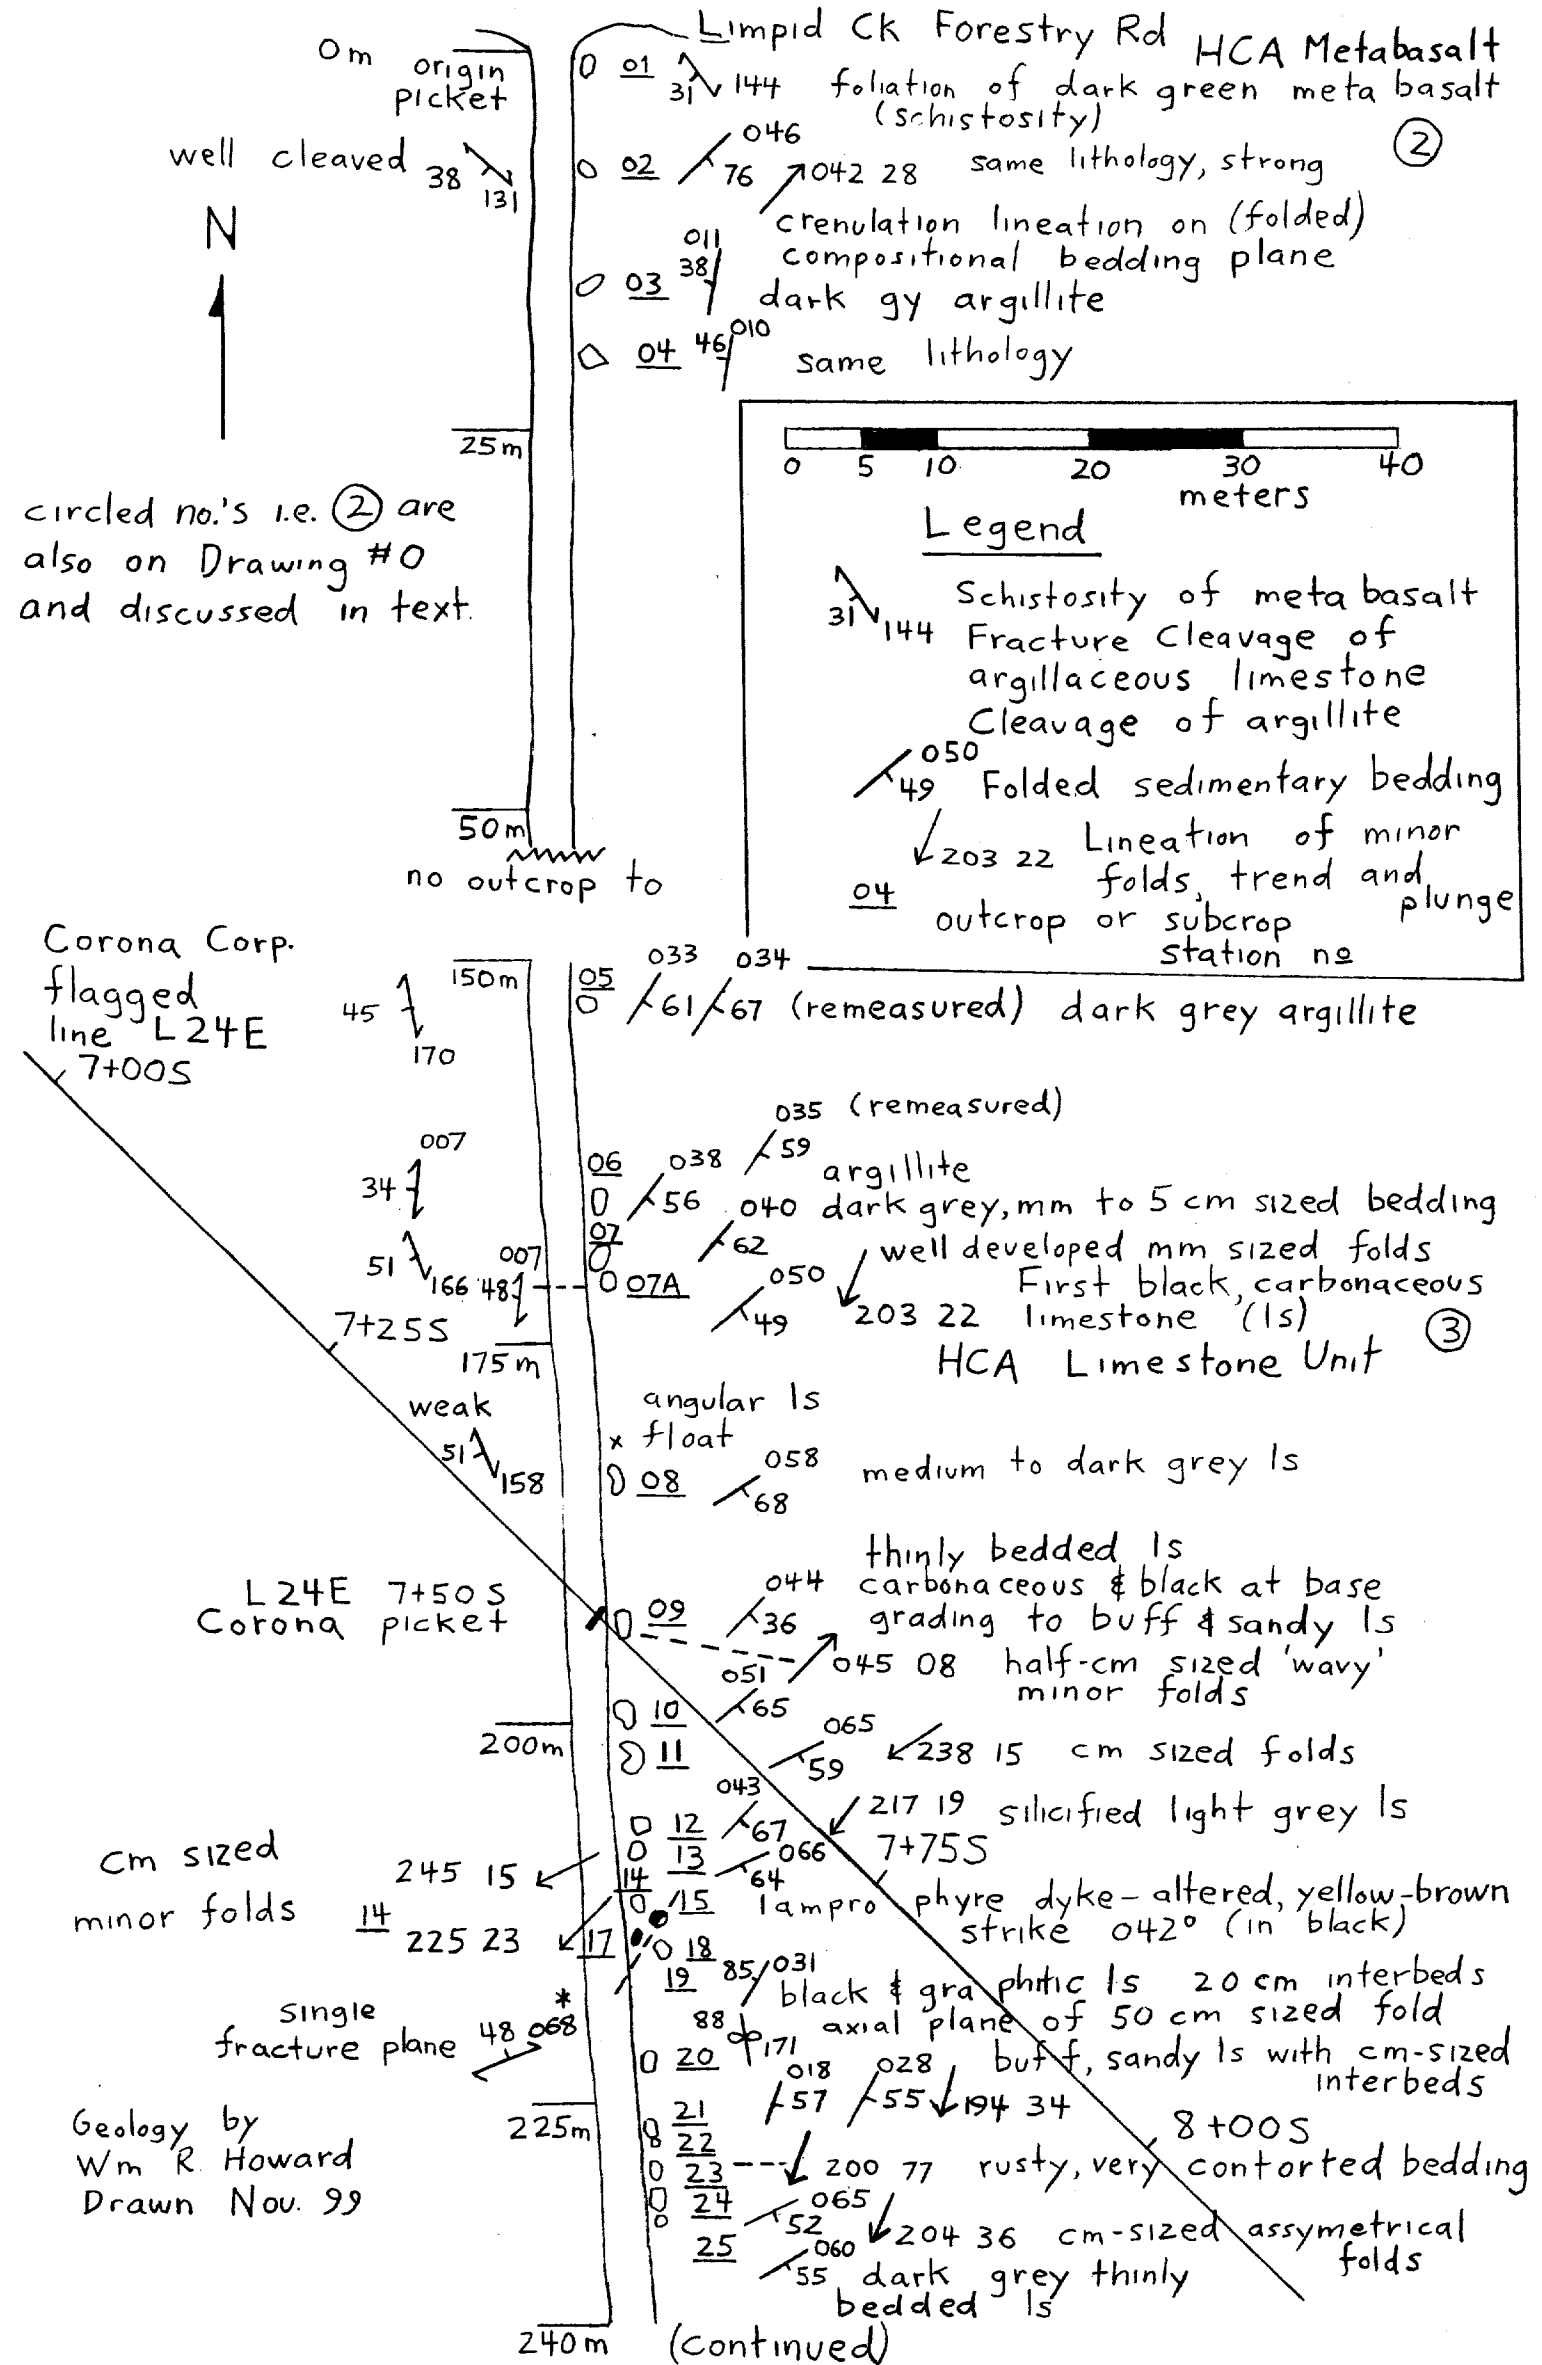 Limpid Ck Forestry Rd HCA Metabasalt
0m origin
picket
01 31 144 foliation of dark green meta basalt
(schistosity)
2
well cleaved 38 131
02 046 76 042 28 same lithology, strong
crenulation lineation on (folded)
compositional bedding plane
N
03 011 38 dark gy argillite
04 46 010 same lithology
25m
circled no.'s i.e. 2 are
also on Drawing #0
and discussed in text.
0 5 10 20 30 40
meters
Legend
31 144 Schistosity of meta basalt
Fracture Cleavage of
argillaceous limestone
Cleavage of argillite
050 49 Folded sedimentary bedding
203 22 Lineation of minor
folds, trend and
plunge
04 outcrop or subcrop
station no
50m
no outcrop to
Corona Corp.
flagged
line L24E
7+00S
150m
45 170
05 033 61 034 67 (remeasured) dark grey argillite
035 (remeasured)
59
007 34
06 038 56 argillite
dark grey, mm to 5 cm sized bedding
07 040 62 well developed mm sized folds
51 166 48 007
07A 050 49 203 22 First black, carbonaceous
limestone (ls)
3
HCA Limestone Unit
7+25S
175m
weak
51 158
angular ls
x float
08 058 68 medium to dark grey ls
L24E 7+50S
Corona picket
thinly bedded ls
09 044 36 carbonaceous & black at base
grading to buff & sandy ls
045 08 half-cm sized 'wavy'
minor folds
10 051 65
200m
11 065 59 238 15 cm sized folds
12 043 67 217 19 silicified light grey ls
7+75S
13 066 64
cm sized
minor folds
245 15
14 225 23
14
15 lamprophyre dyke- altered, yellow-brown
strike 042° (in black)
17
18
19 85 031 black & graphitic ls 20 cm interbeds
88 171 axial plane of 50 cm sized fold
single
fracture plane 48 068 *
20 buff, sandy ls with cm-sized
interbeds
018 57 028 55 194 34
225m
21
22
8+00S
23 200 77 rusty, very contorted bedding
24 065 52 204 36 cm-sized assymetrical
folds
25 060 55 dark grey thinly
bedded ls
Geology by
Wm R. Howard
Drawn Nov. 99
240m (continued)